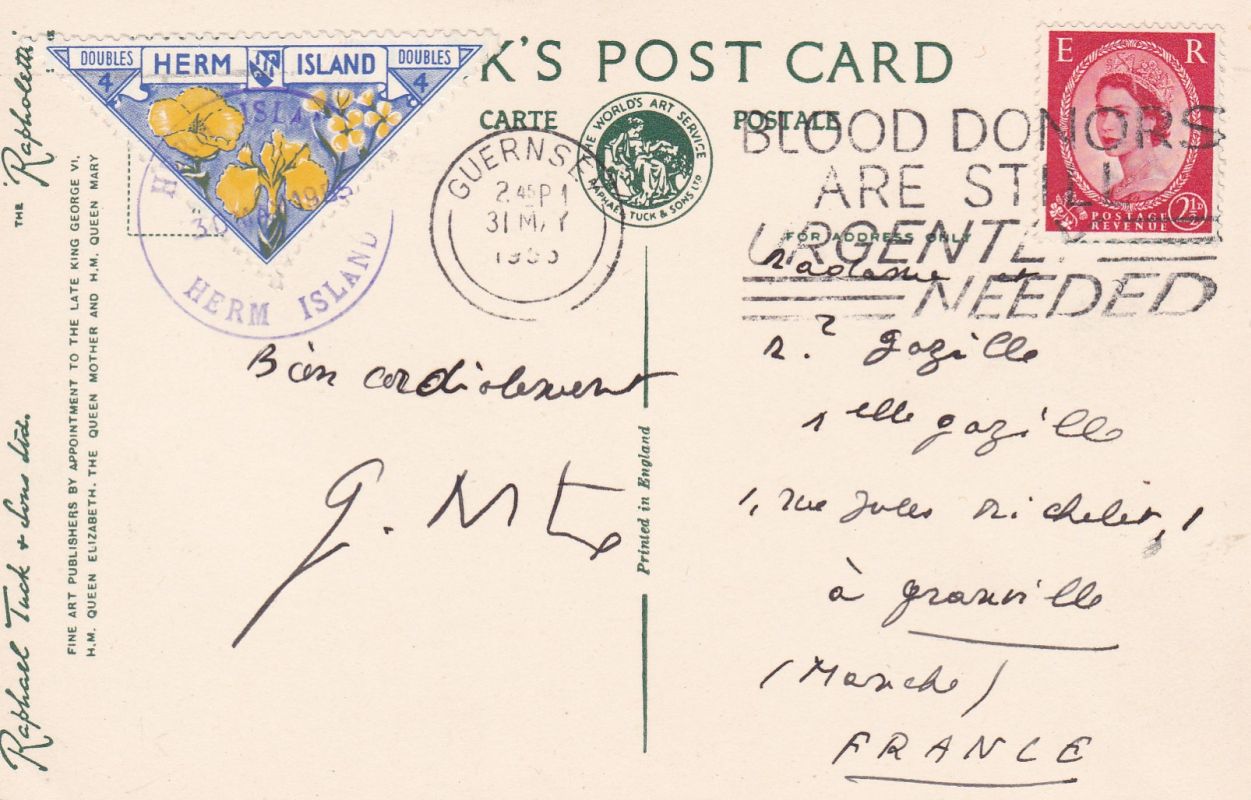 DOUBLES 4 HERM ISLAND DOUBLES 4
K'S POST CARD
CARTE POSTALE
THE WORLD'S ART SERVICE
RAPHAEL TUCK & SONS LTD
FOR ADDRESS ONLY
HERM ISLAND
GUERNSEY
2 45 PM
31 MAY
BLOOD DONORS
ARE STILL
URGENTLY
NEEDED
E R
POSTAGE
REVENUE 2½D
THE "Raphaletti"
Raphael Tuck & Sons Ltd.
FINE ART PUBLISHERS BY APPOINTMENT TO THE LATE KING GEORGE VI,
H.M. QUEEN ELIZABETH, THE QUEEN MOTHER AND H.M. QUEEN MARY
Printed in England
Bien cordialement
G.
Madame et
Mr gazille
Melle gazille
1, rue Jules Michelet, 1
à granville
(Manche)
FRANCE